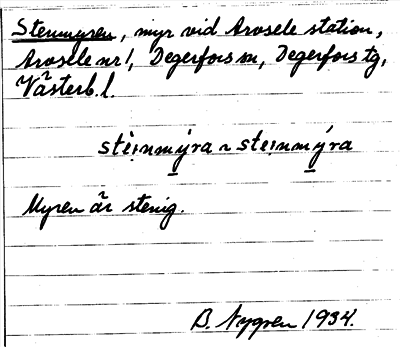 Stenmyren, myr vid Arosele station,
Arosele nr 1, Degerfors sn, Degerfors tg,
Västerb. l.
stèi̩nmy̱ra ~ stei̩nmý̱ra
Myren är stenig.
B. Nygren 1934.